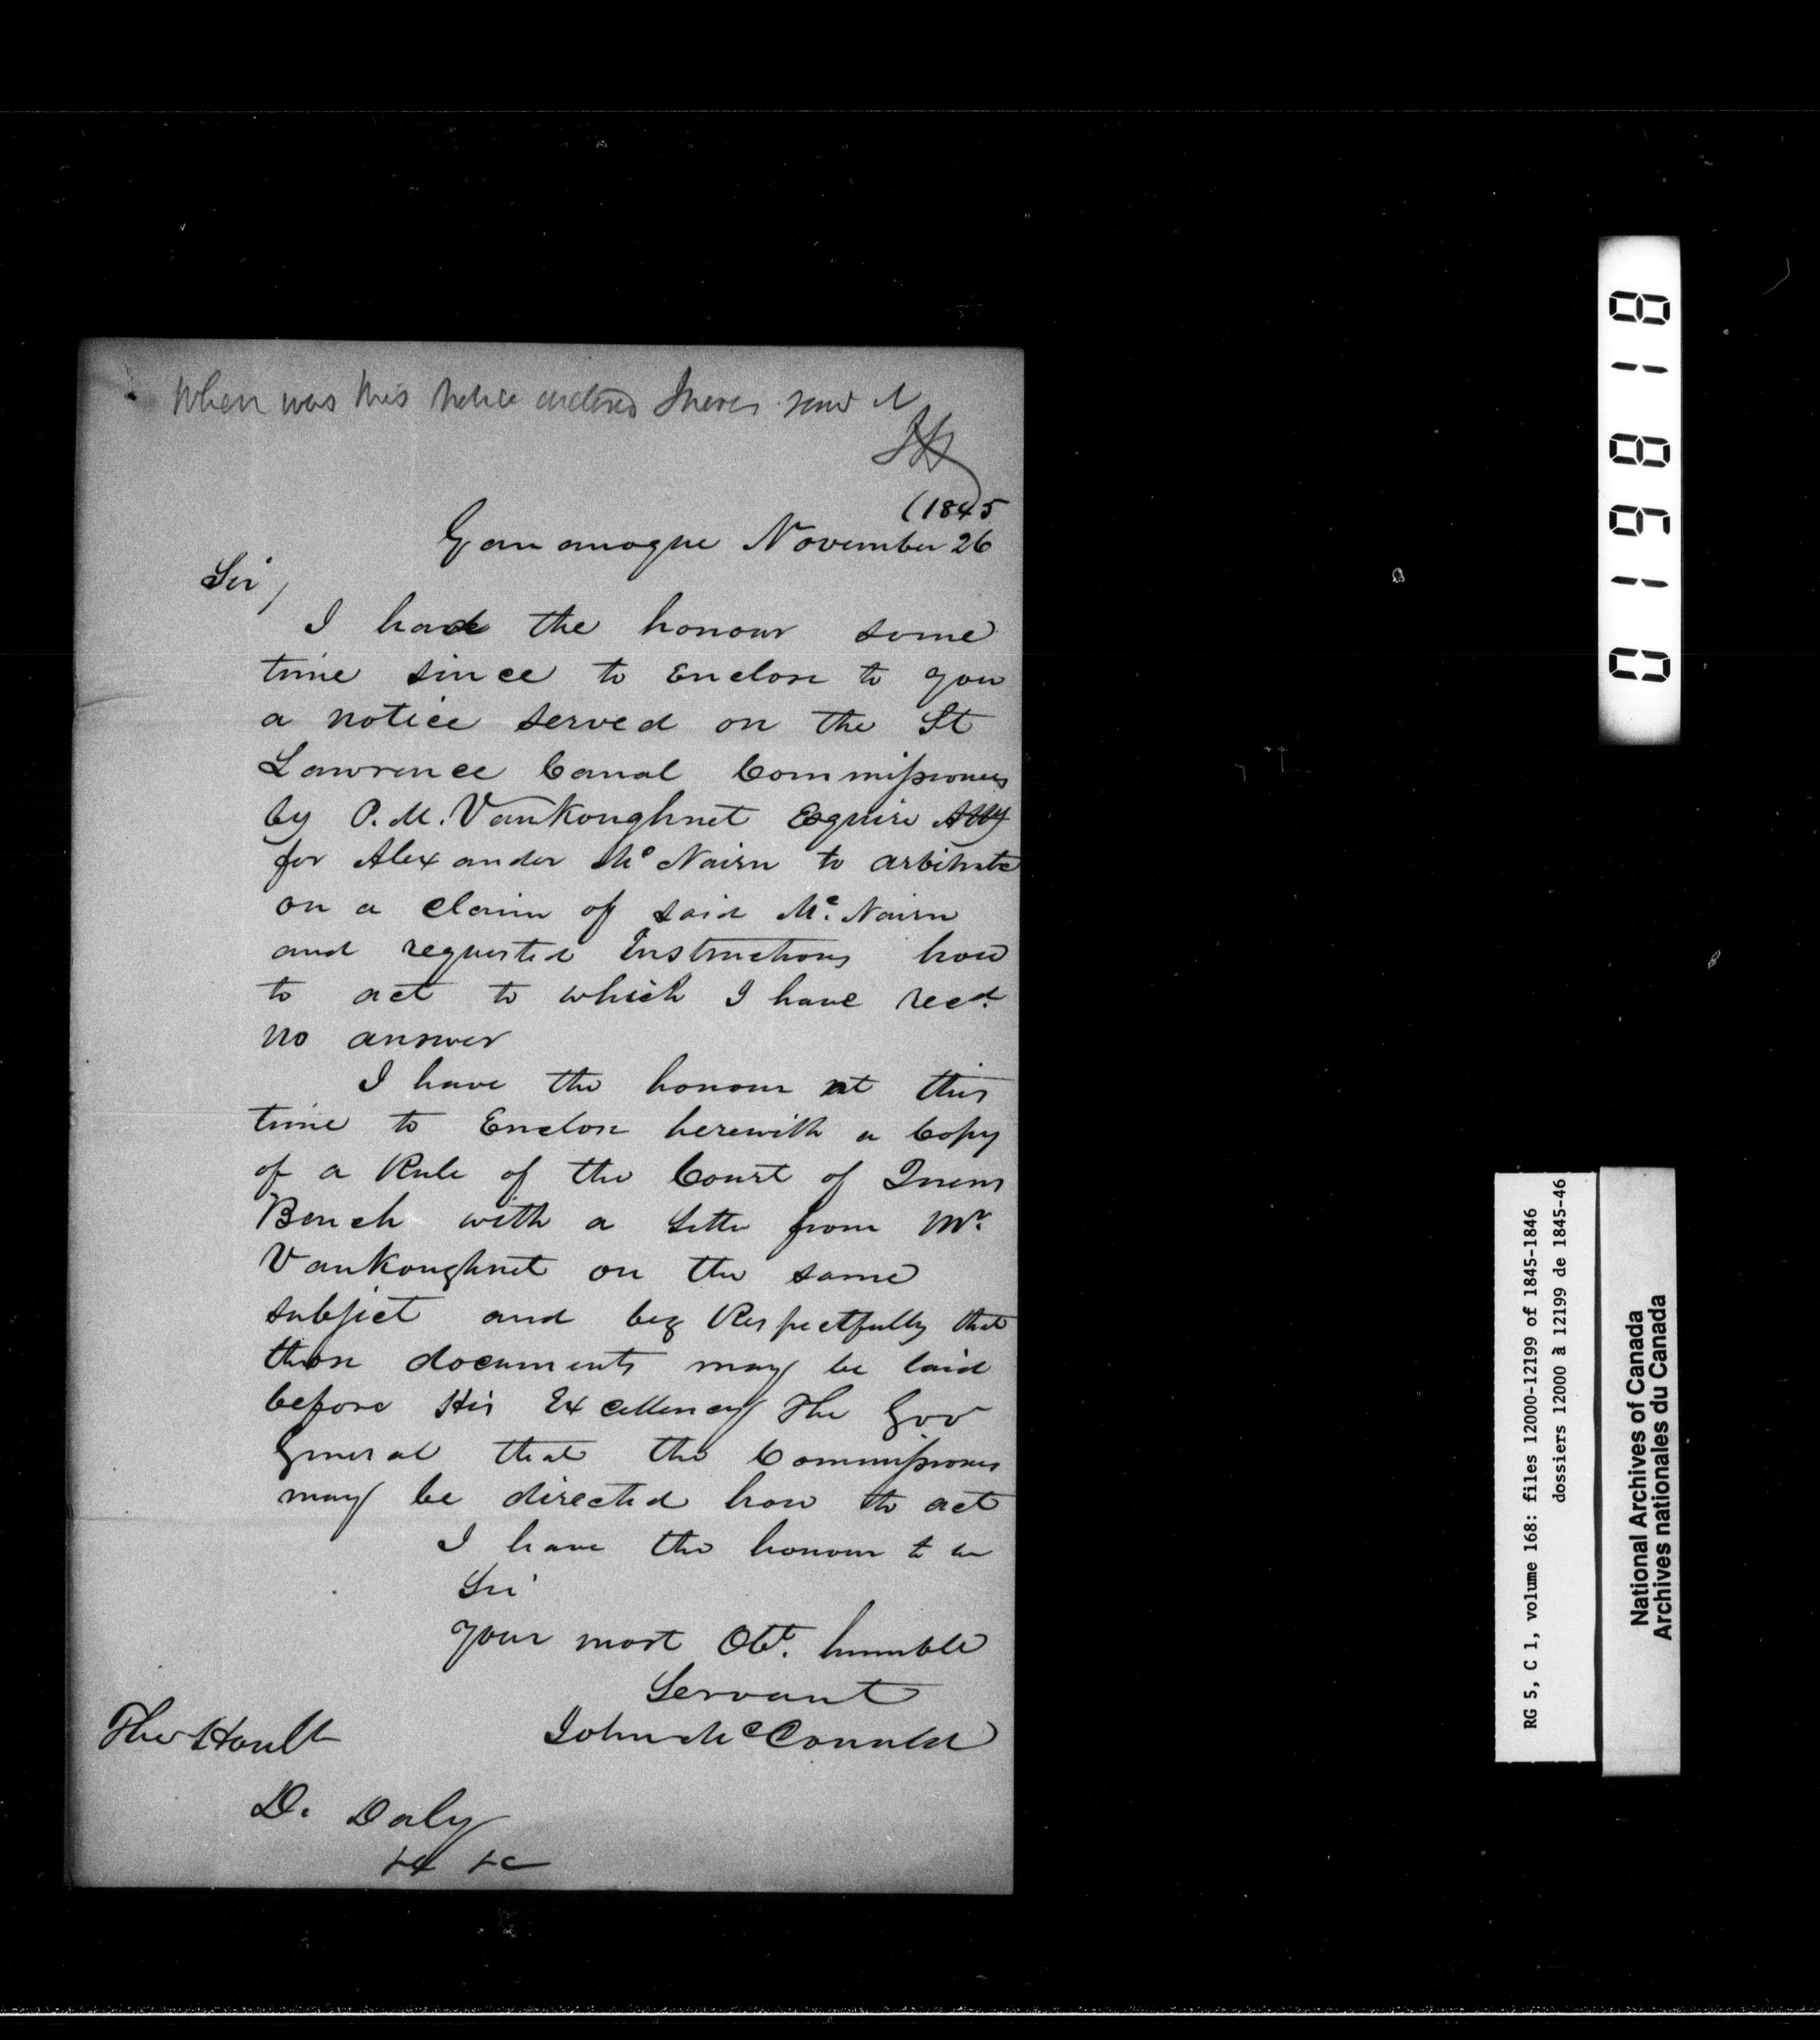 When was this notice ordered I never saw it
(1845
Gananoque November 26
Sir,
I had the honour some
time since to Enclose to you
a notice served on the St
Lawrence Canal Commissioners
by P. M. VanKoughnet Esquire Atty
for Alexander Mc Nairn to arbitrate
on a claim of said Mc. Nairn
and requested Instructions how
to act to which I have recd.
no answer
I have the honour at this
time to Enclose herewith a Copy
of a Rule of the Court of Queens
Bench with a Letter from Mr.
VanKoughnet on the same
subject and beg Respectfully that
those documents may be laid
before His Excellency The Gov
General that the Commissioners
may be directed how to act
I have the honour to be
Sir
your most Obt. humble
Servant
John McDonald
The Honble
D. Daly
&c &c
018618
RG 5, C 1, volume 168: files 12000-12199 of 1845-1846
dossiers 12000 à 12199 de 1845-46
National Archives of Canada
Archives nationales du Canada